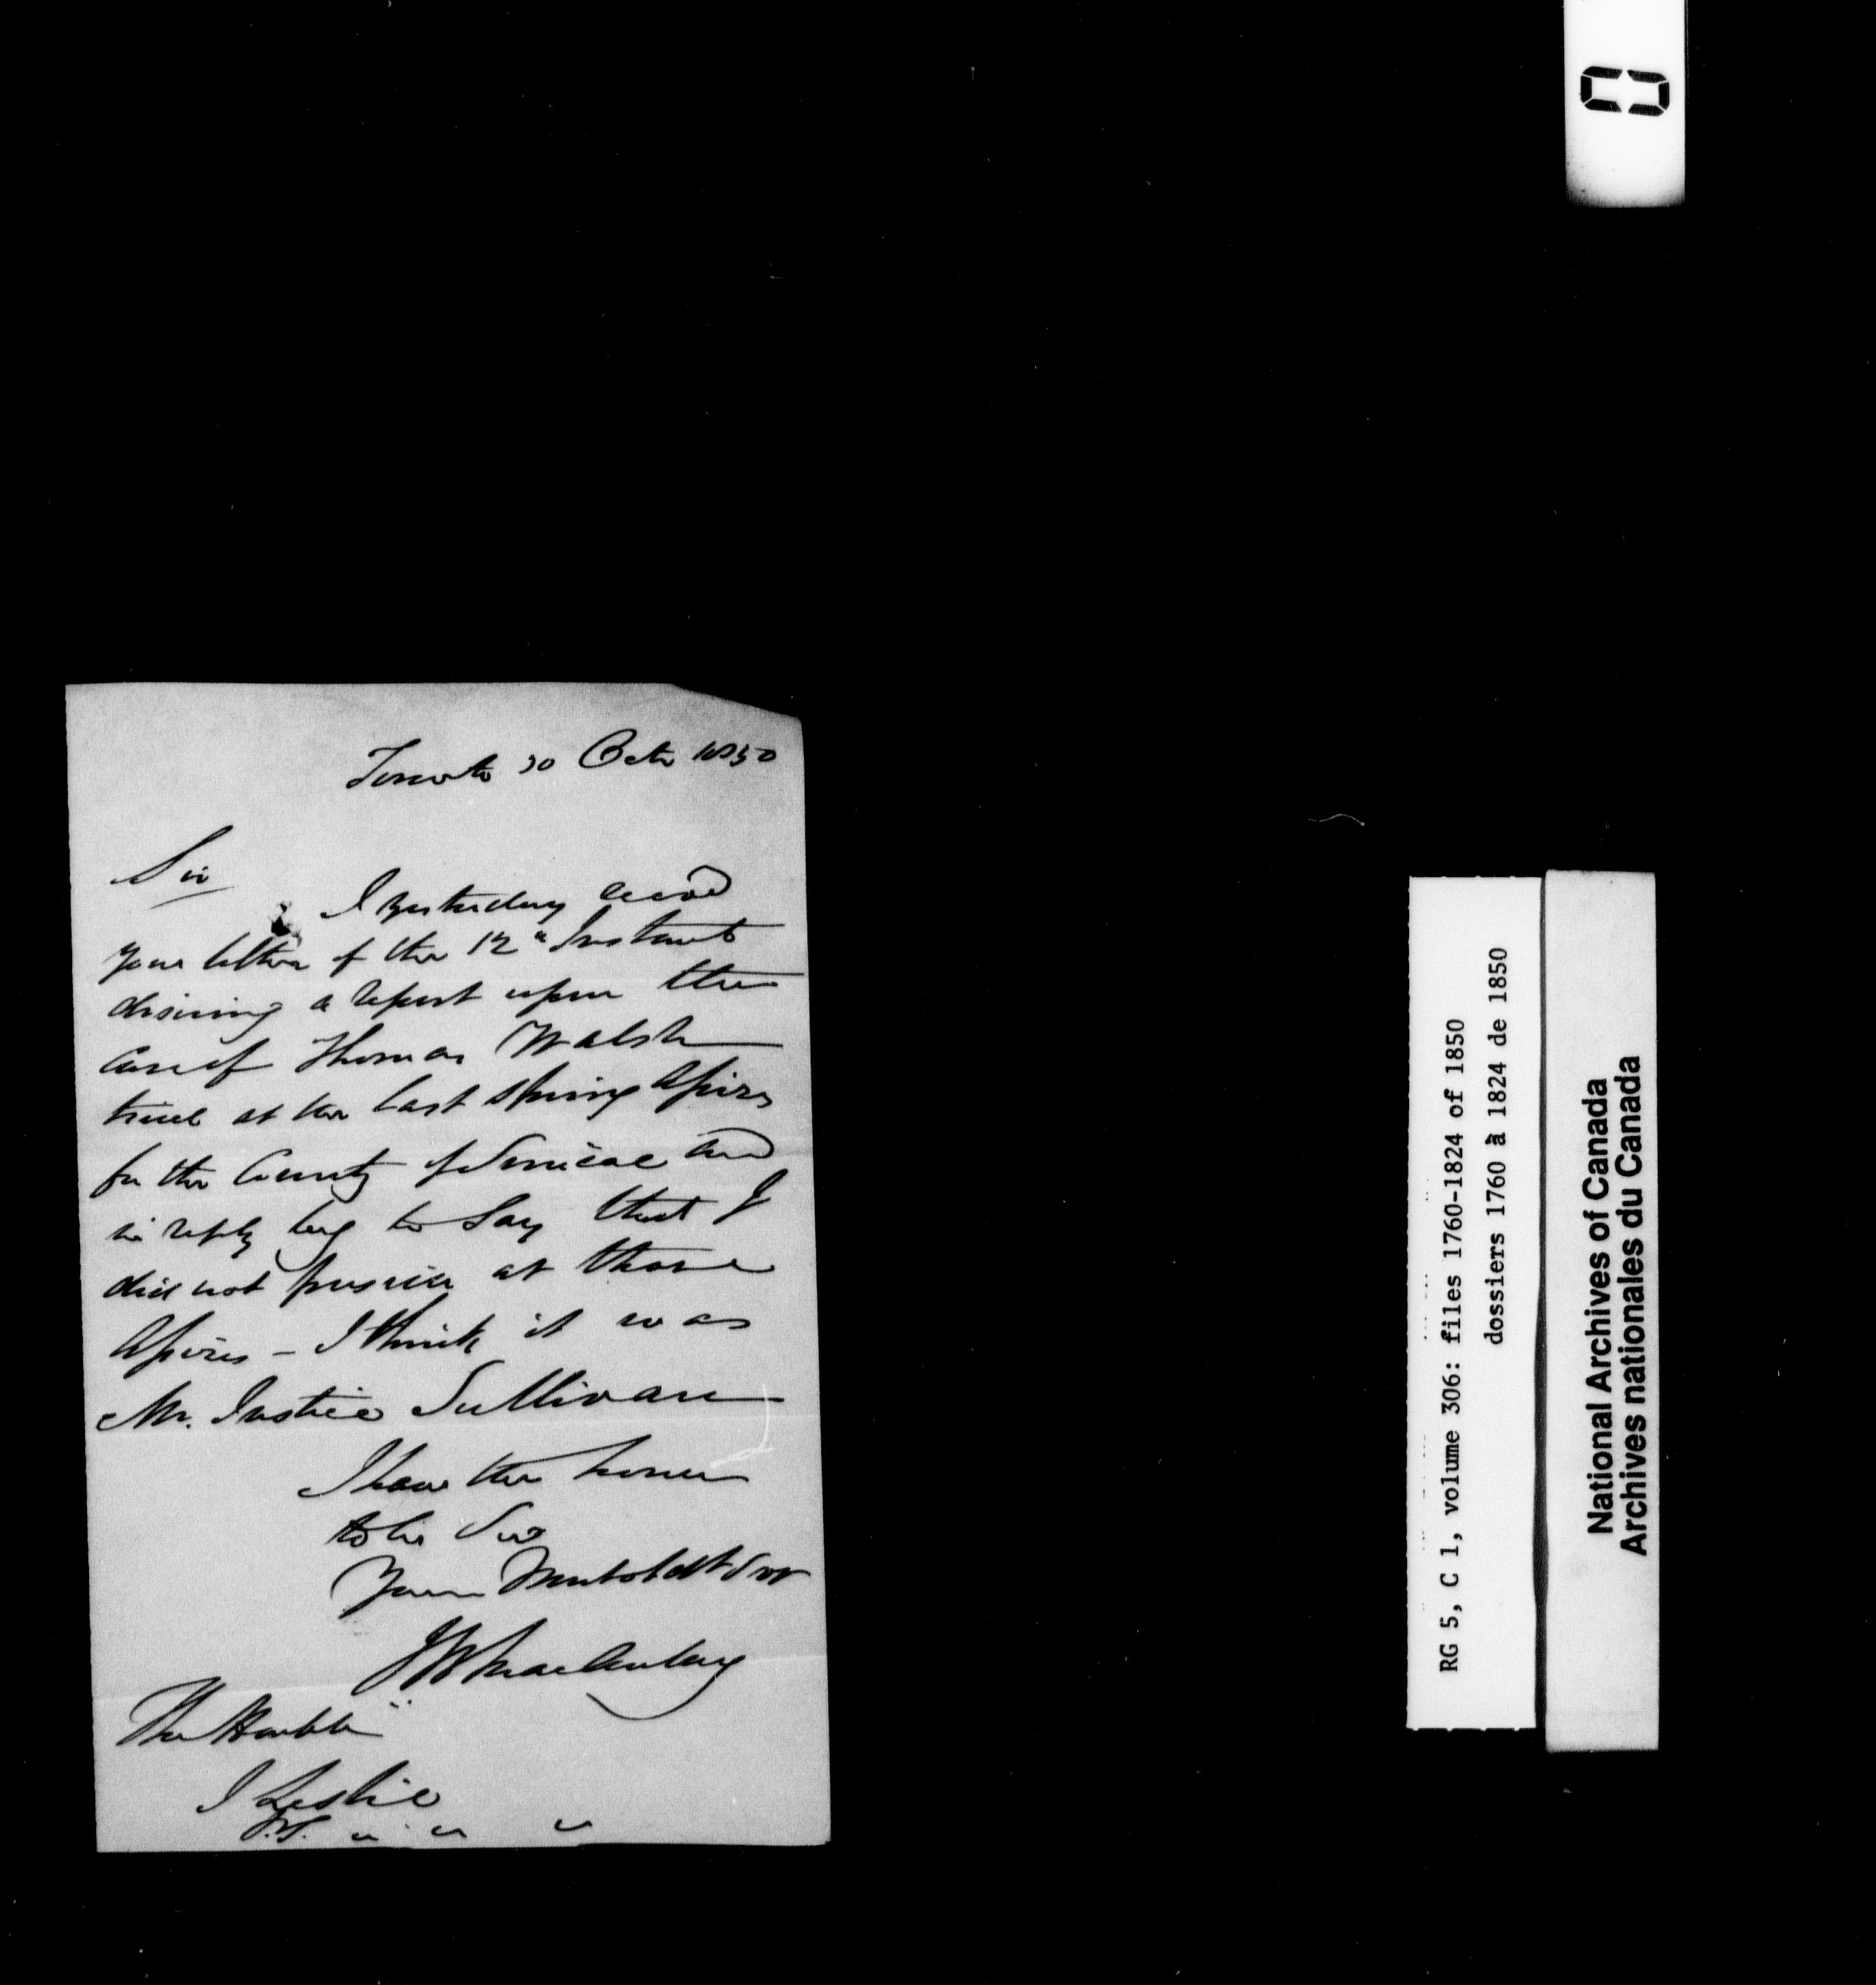 Toronto 30 Octr 1850
Sir
I yesterday recevd
your letter of the 12th Instant
desiring a report upon the
case of Thomas Walsh
tried at the last Spring Assizes
for the County of Simcoe and
in reply beg to Say that I
did not preside at those
Assizes - I think it was
Mr. Justice Sullivan
I have the honor
to be Sir
Your Most obdt Svt
J B Macaulay
The Honble
J Leslie
RG 5, C 1, volume 306: files 1760-1824 of 1850
dossiers 1760 à 1824 de 1850
National Archives of Canada
Archives nationales du Canada
0